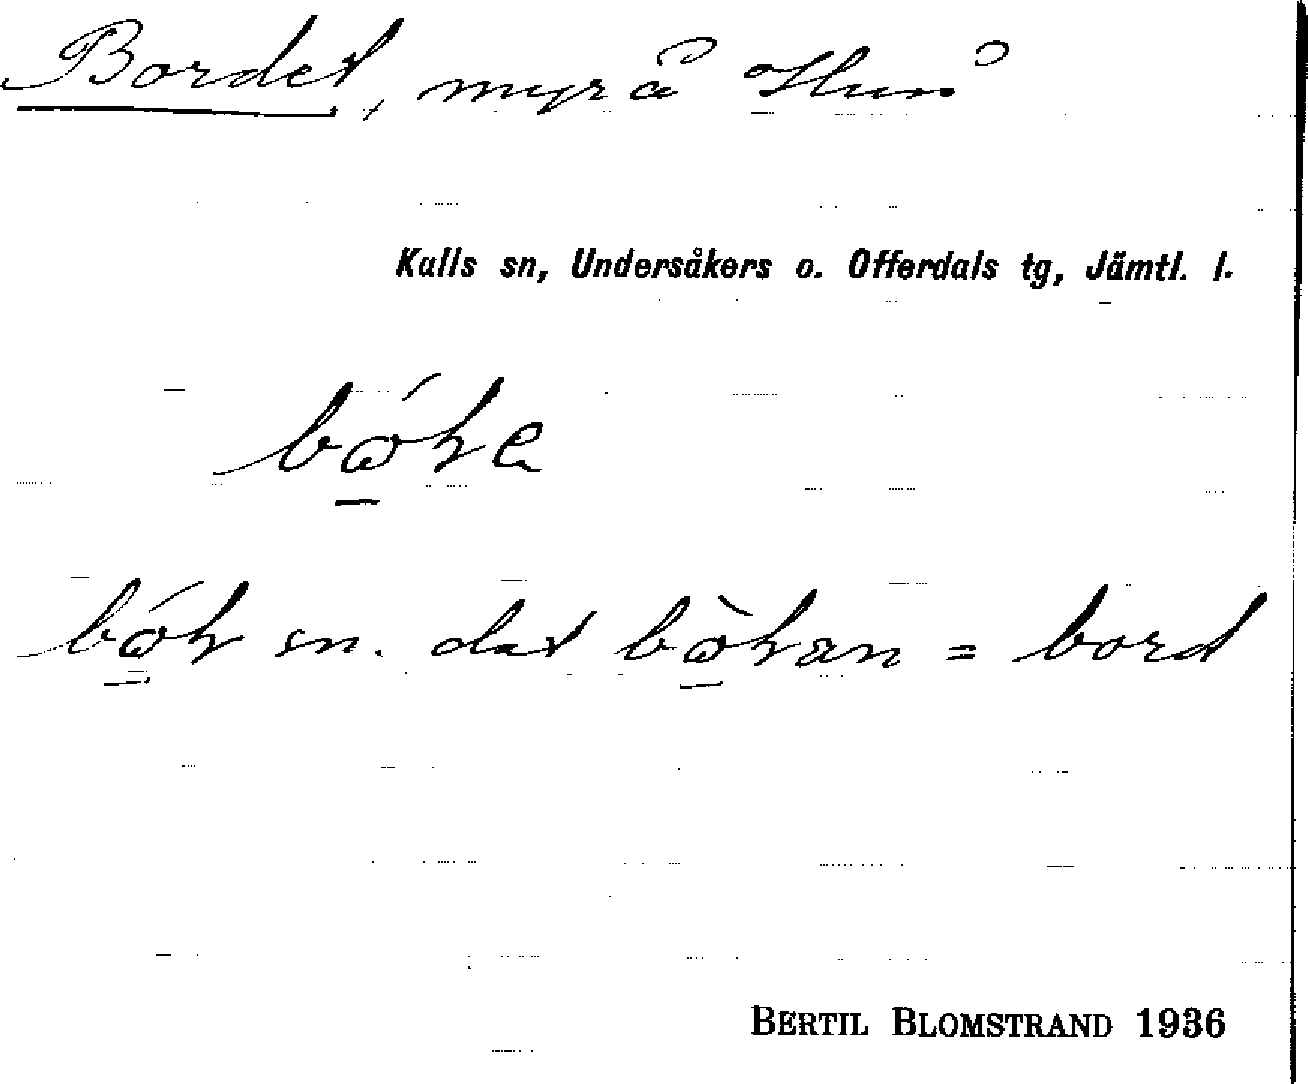 Bordet, myr å
Kalls sn, Undersåkers o. Offerdals tg, Jämtl. l.
sn. dat = bord
BERTIL BLOMSTRAND 1936